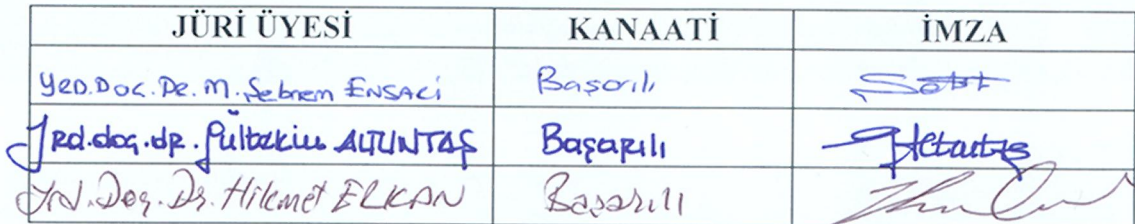 JÜRİ ÜYESİ KANAATİ İMZA
YRD.DOÇ.DR. M. Şebnem ENSARİ Başarılı
Yrd.doç.dr. Gültekin ALTUNTAŞ Başarılı
Yrd. Doç. Dr. Hikmet ERKAN Başarılı